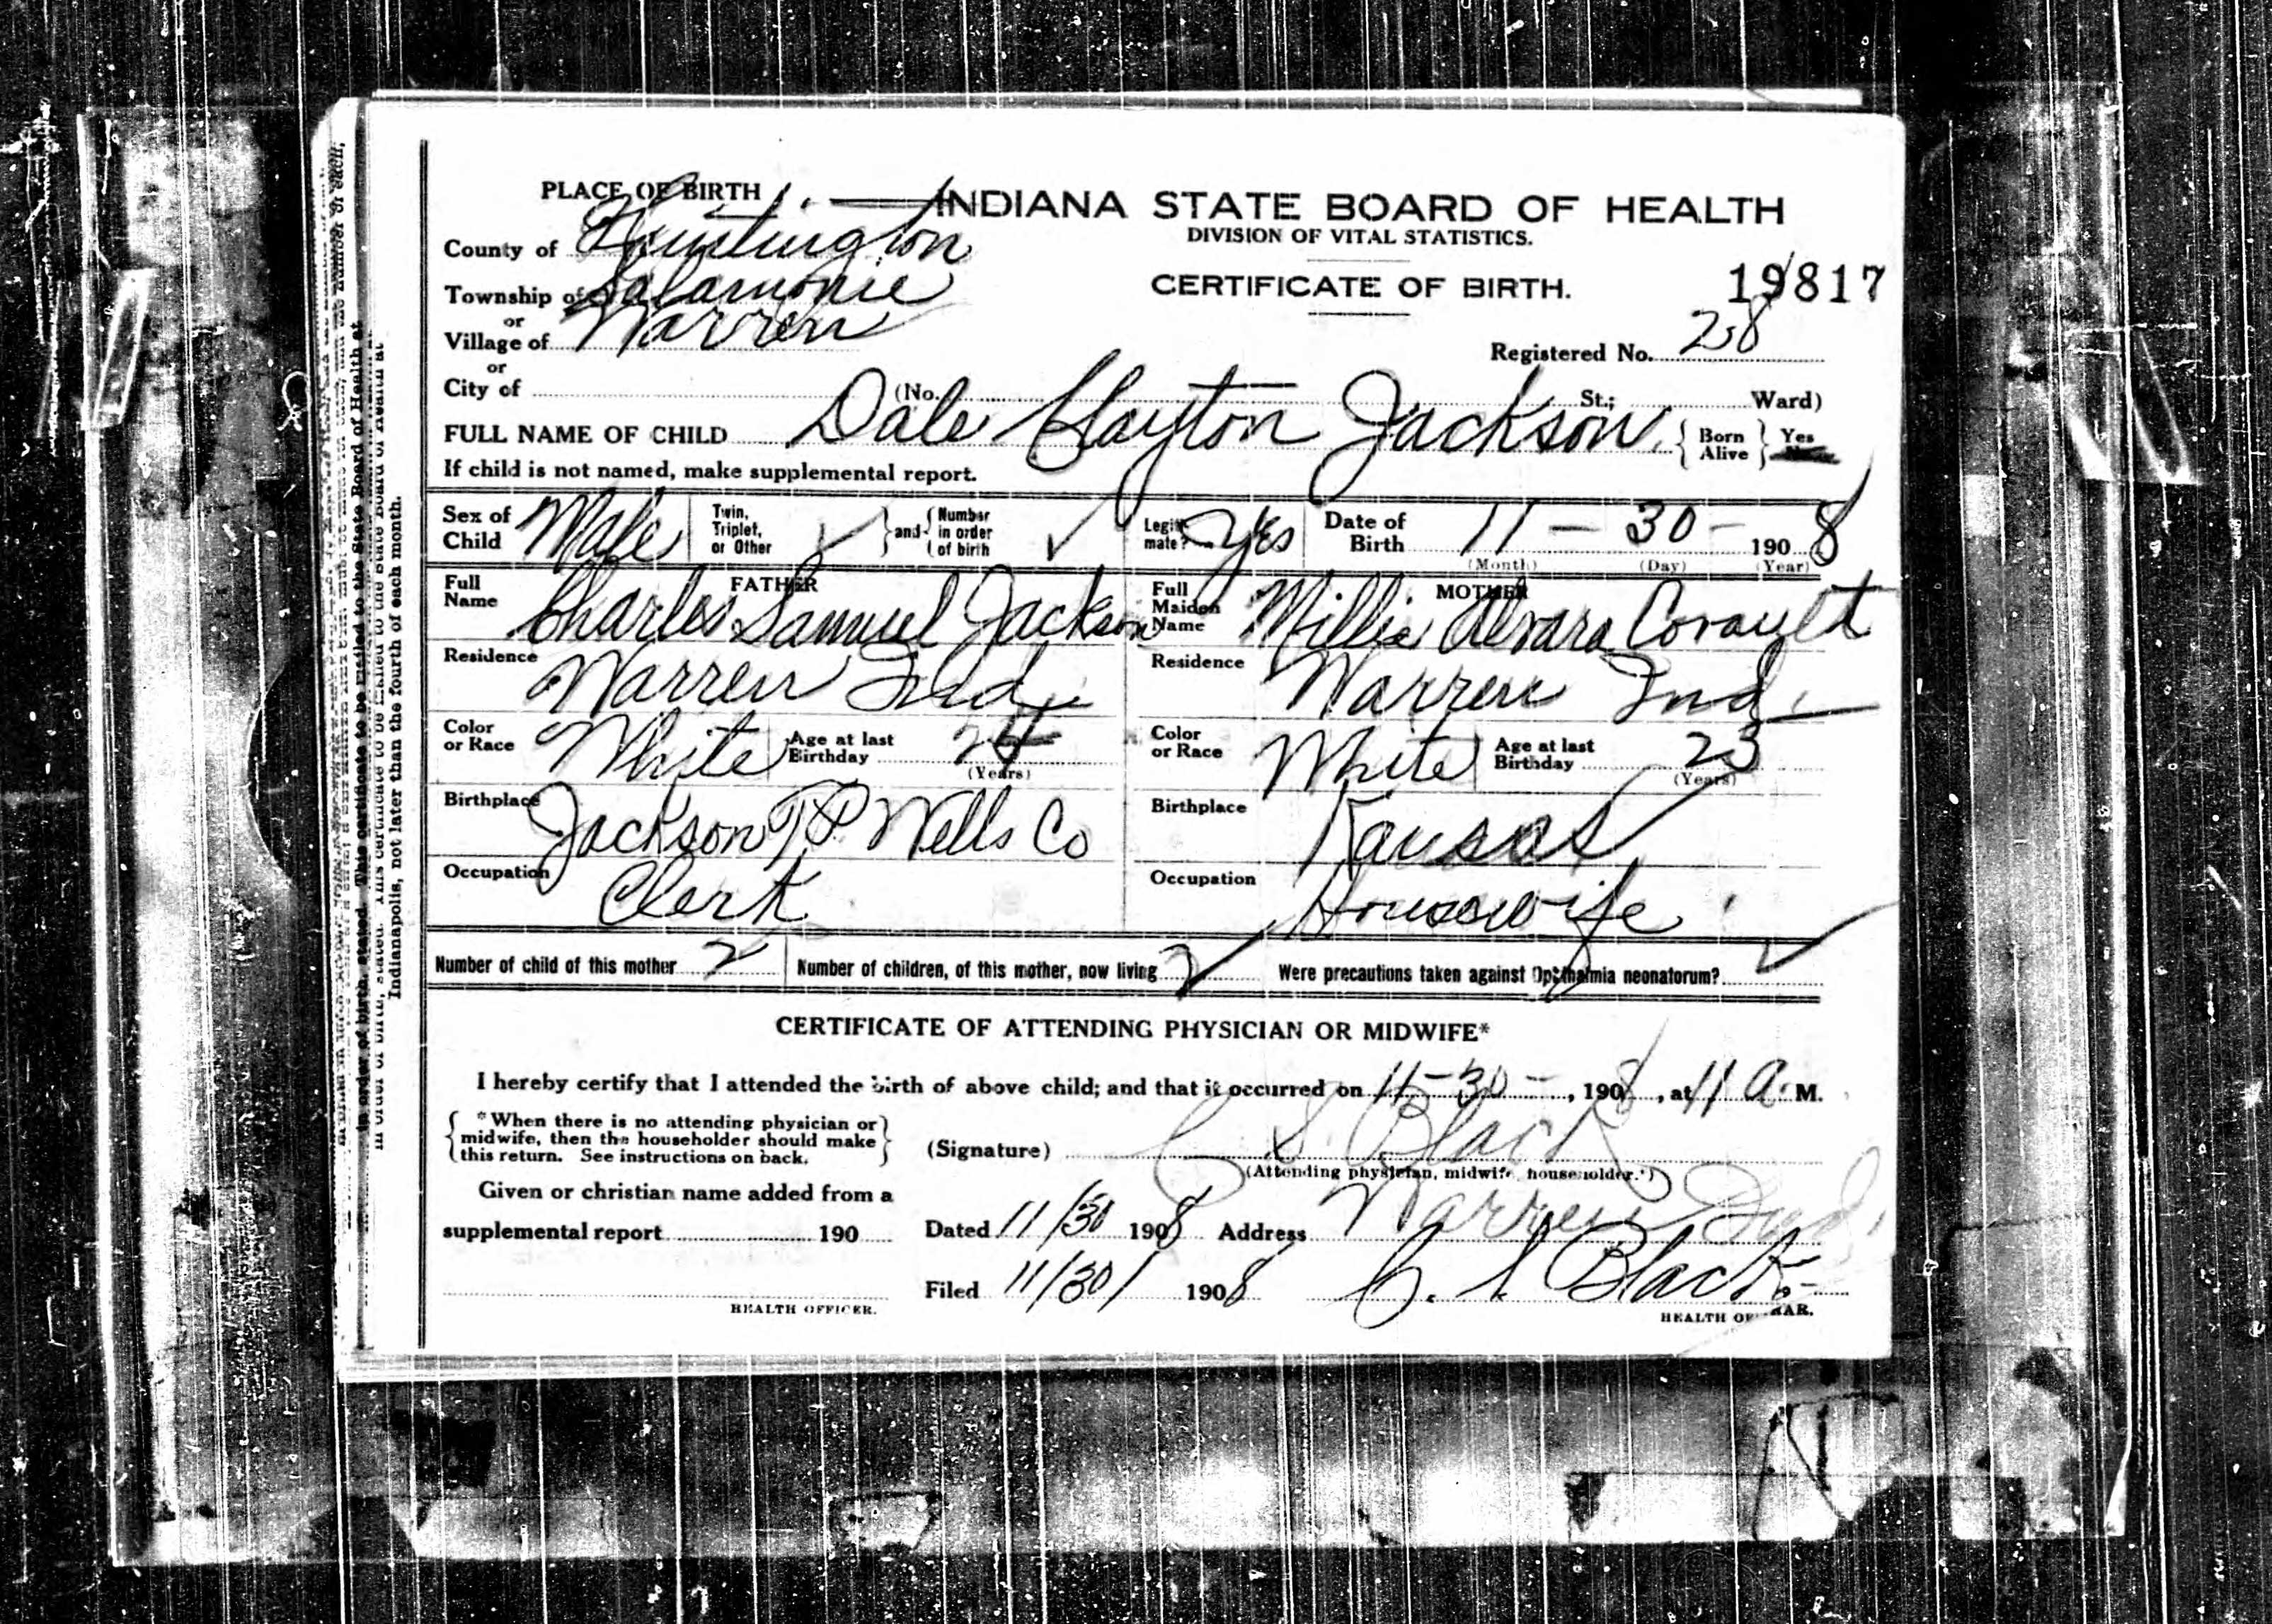 PLACE OF BIRTH
INDIANA STATE BOARD OF HEALTH
DIVISION OF VITAL STATISTICS.
CERTIFICATE OF BIRTH.
19817
County of Huntington
Township of Salamonie
or
Village of Warren
or
Registered No. 28
City of (No. St.; Ward)
FULL NAME OF CHILD Dale Clayton Jackson { Born Alive } Yes
If child is not named, make supplemental report.
Sex of Child Male Twin, Triplet, or Other } and { Number in order of birth Legitimate? Yes Date of Birth 11 - 30 - 1908
(Month) (Day) (Year)
FATHER
Full Name Charles Samuel Jackson
Residence Warren Ind.
Color or Race White Age at last Birthday 24 (Years)
Birthplace Jackson TP. Wells Co
Occupation Clerk
MOTHER
Full Maiden Name Millie Alvara Covault
Residence Warren Ind.
Color or Race White Age at last Birthday 23 (Years)
Birthplace Kansas
Occupation Housewife
Number of child of this mother 2 Number of children, of this mother, now living 2 Were precautions taken against Ophthalmia neonatorum?
CERTIFICATE OF ATTENDING PHYSICIAN OR MIDWIFE*
I hereby certify that I attended the birth of above child; and that it occurred on 11-30-, 1908, at 11 A. M.
{ *When there is no attending physician or
midwife, then the householder should make
this return. See instructions on back. }
(Signature) C S. Black
(Attending physician, midwife, householder.*)
Given or christian name added from a
supplemental report 190
Dated 11/30 1908 Address Warren Ind.
Filed 11/30/ 1908 C. S. Black
HEALTH OFFICER.
in order of birth, stated. This certificate to be mailed to the State Board of Health at
Indianapolis, not later than the fourth of each month.